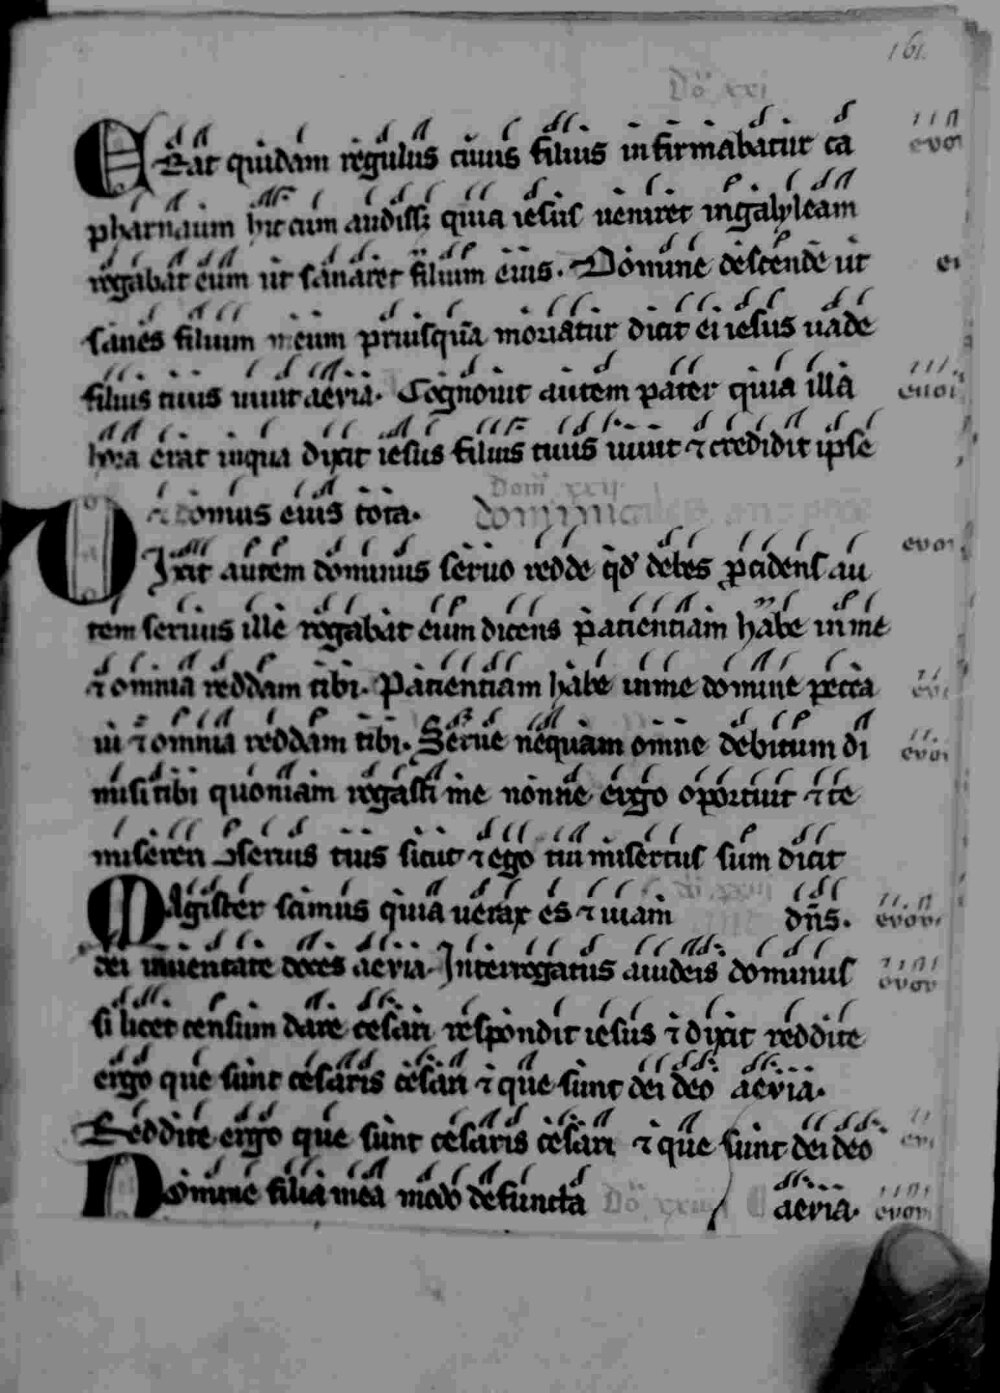 161.
Do xxi
Erat quidam regulus cuius filius infirmabatur ca evo
pharnaum hic cum audiss& quia iesus ueniret ingalyleam
rogabat eum ut sanaret filium eius. Domine descende ut e
sanes filium meum priusquā moriatur dicit ei iesus uade
filius tuus uiuit aevia. Cognouit autem pater quia illa euo
hora erat inqua dixit iesus filius tuus uiuit ⁊ credidit ipse
domus eius tota. Dom xxij dominica
Dixit autem dominus seruo redde qd debes ꝓcidens au evo
tem seruus ille rogabat eum dicens patientiam habe in me
⁊ omnia reddam tibi. Patientiam habe inme domine pecca
ui ⁊ omnia reddam tibi. Serue nequam omne debitum di evo
misi tibi quoniam rogasti me nonne ergo oportuit ⁊ te
misereri ɔserui tui sicut ⁊ ego tui misertus sum dicit
Magister scimus quia uerax es ⁊ uiam do xxiij dn̄s. evov
dei inueritate doces aevia. Interrogatus a iudeis dominus evov
si licet censum dare cesari respondit iesus ⁊ dixit reddite
ergo que sunt cesaris cesari ⁊ que sunt dei deo aevia.
Reddite ergo que sunt cesaris cesari ⁊ que sunt dei deo ev
Domine filia mea modo defuncta Do xxiiij aevia. evov